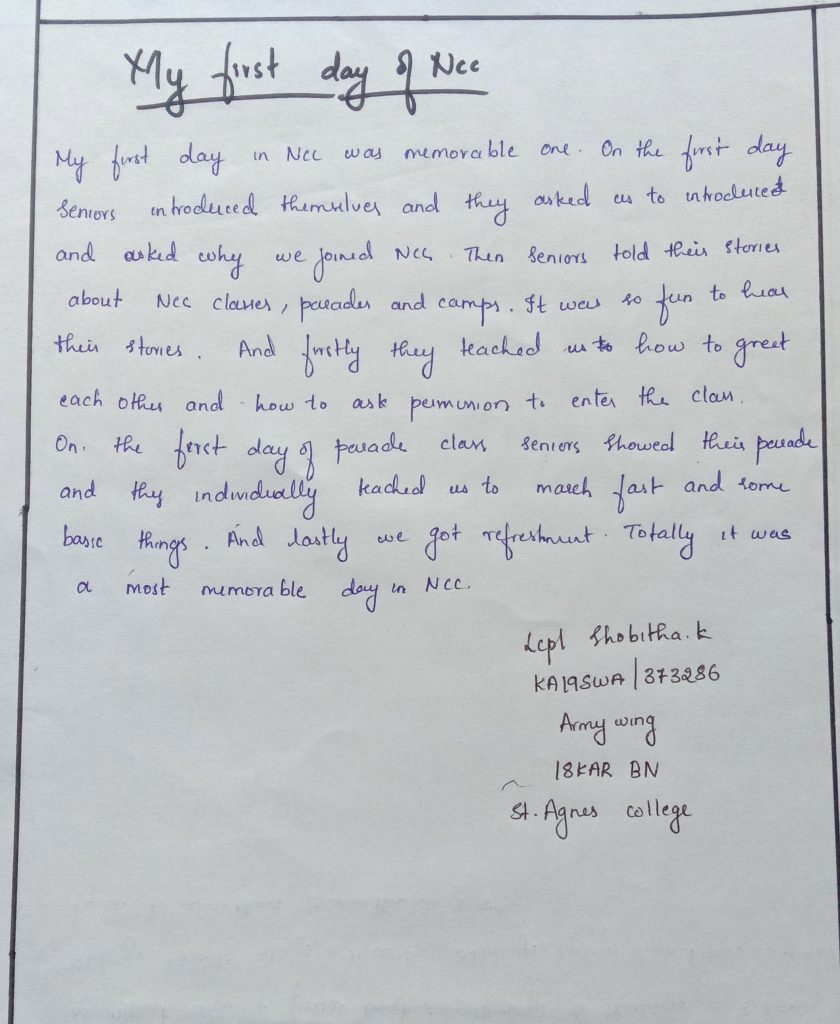 My first day of Ncc
My first day in Ncc was memorable one. On the first day
Seniors introduced themselves and they asked us to introduced
and asked why we joined NCC. Then Seniors told their stories
about Ncc classes, parades and camps. It was so fun to hear
their stories. And firstly they teached us to how to greet
each other and how to ask permission to enter the class.
On. the first day of parade class seniors showed their parade
and they individually teached us to march fast and some
basic things. And lastly we got refreshment. Totally it was
a most memorable day in NCC.
Lcpl Shobitha.k
KA19SWA/373286
Army wing
18KAR BN
St. Agnes college